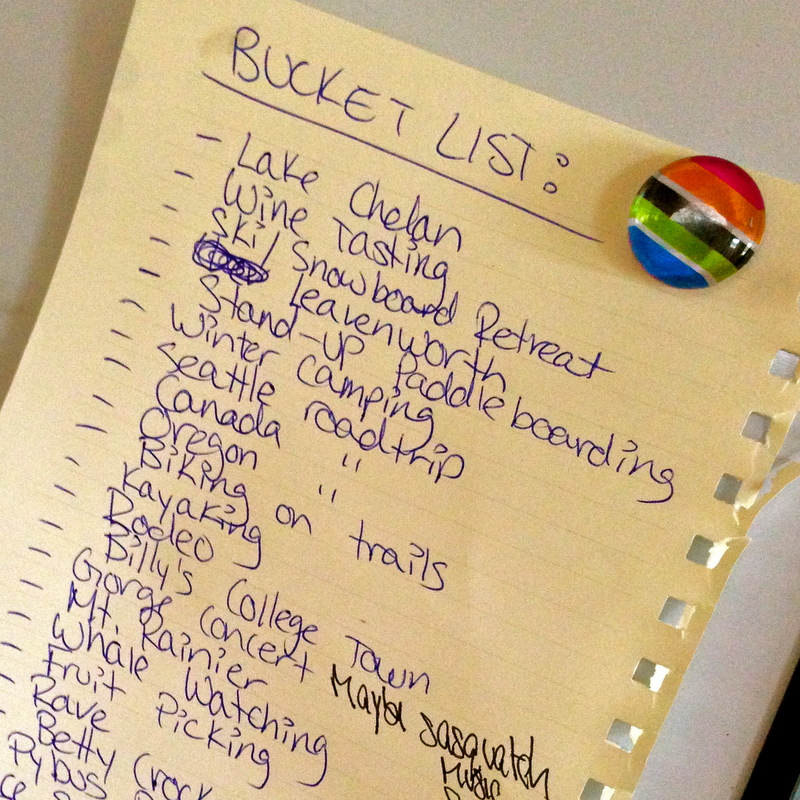 BUCKET LIST:
- Lake Chelan
- Wine Tasting
- Ski/ Snowboard Retreat
- Leavenworth
- Stand-up Paddleboarding
- Winter Camping
- Seattle roadtrip
- Canada "
- Oregon "
- Biking on trails
- Kayaking
- Rodeo
- Billy's College Town
- Gorge Concert Mayba sasquatch
Music
- Mt. Rainier
- Whale Watching
- Fruit Picking
- Rave
- Betty Crock
Pybus